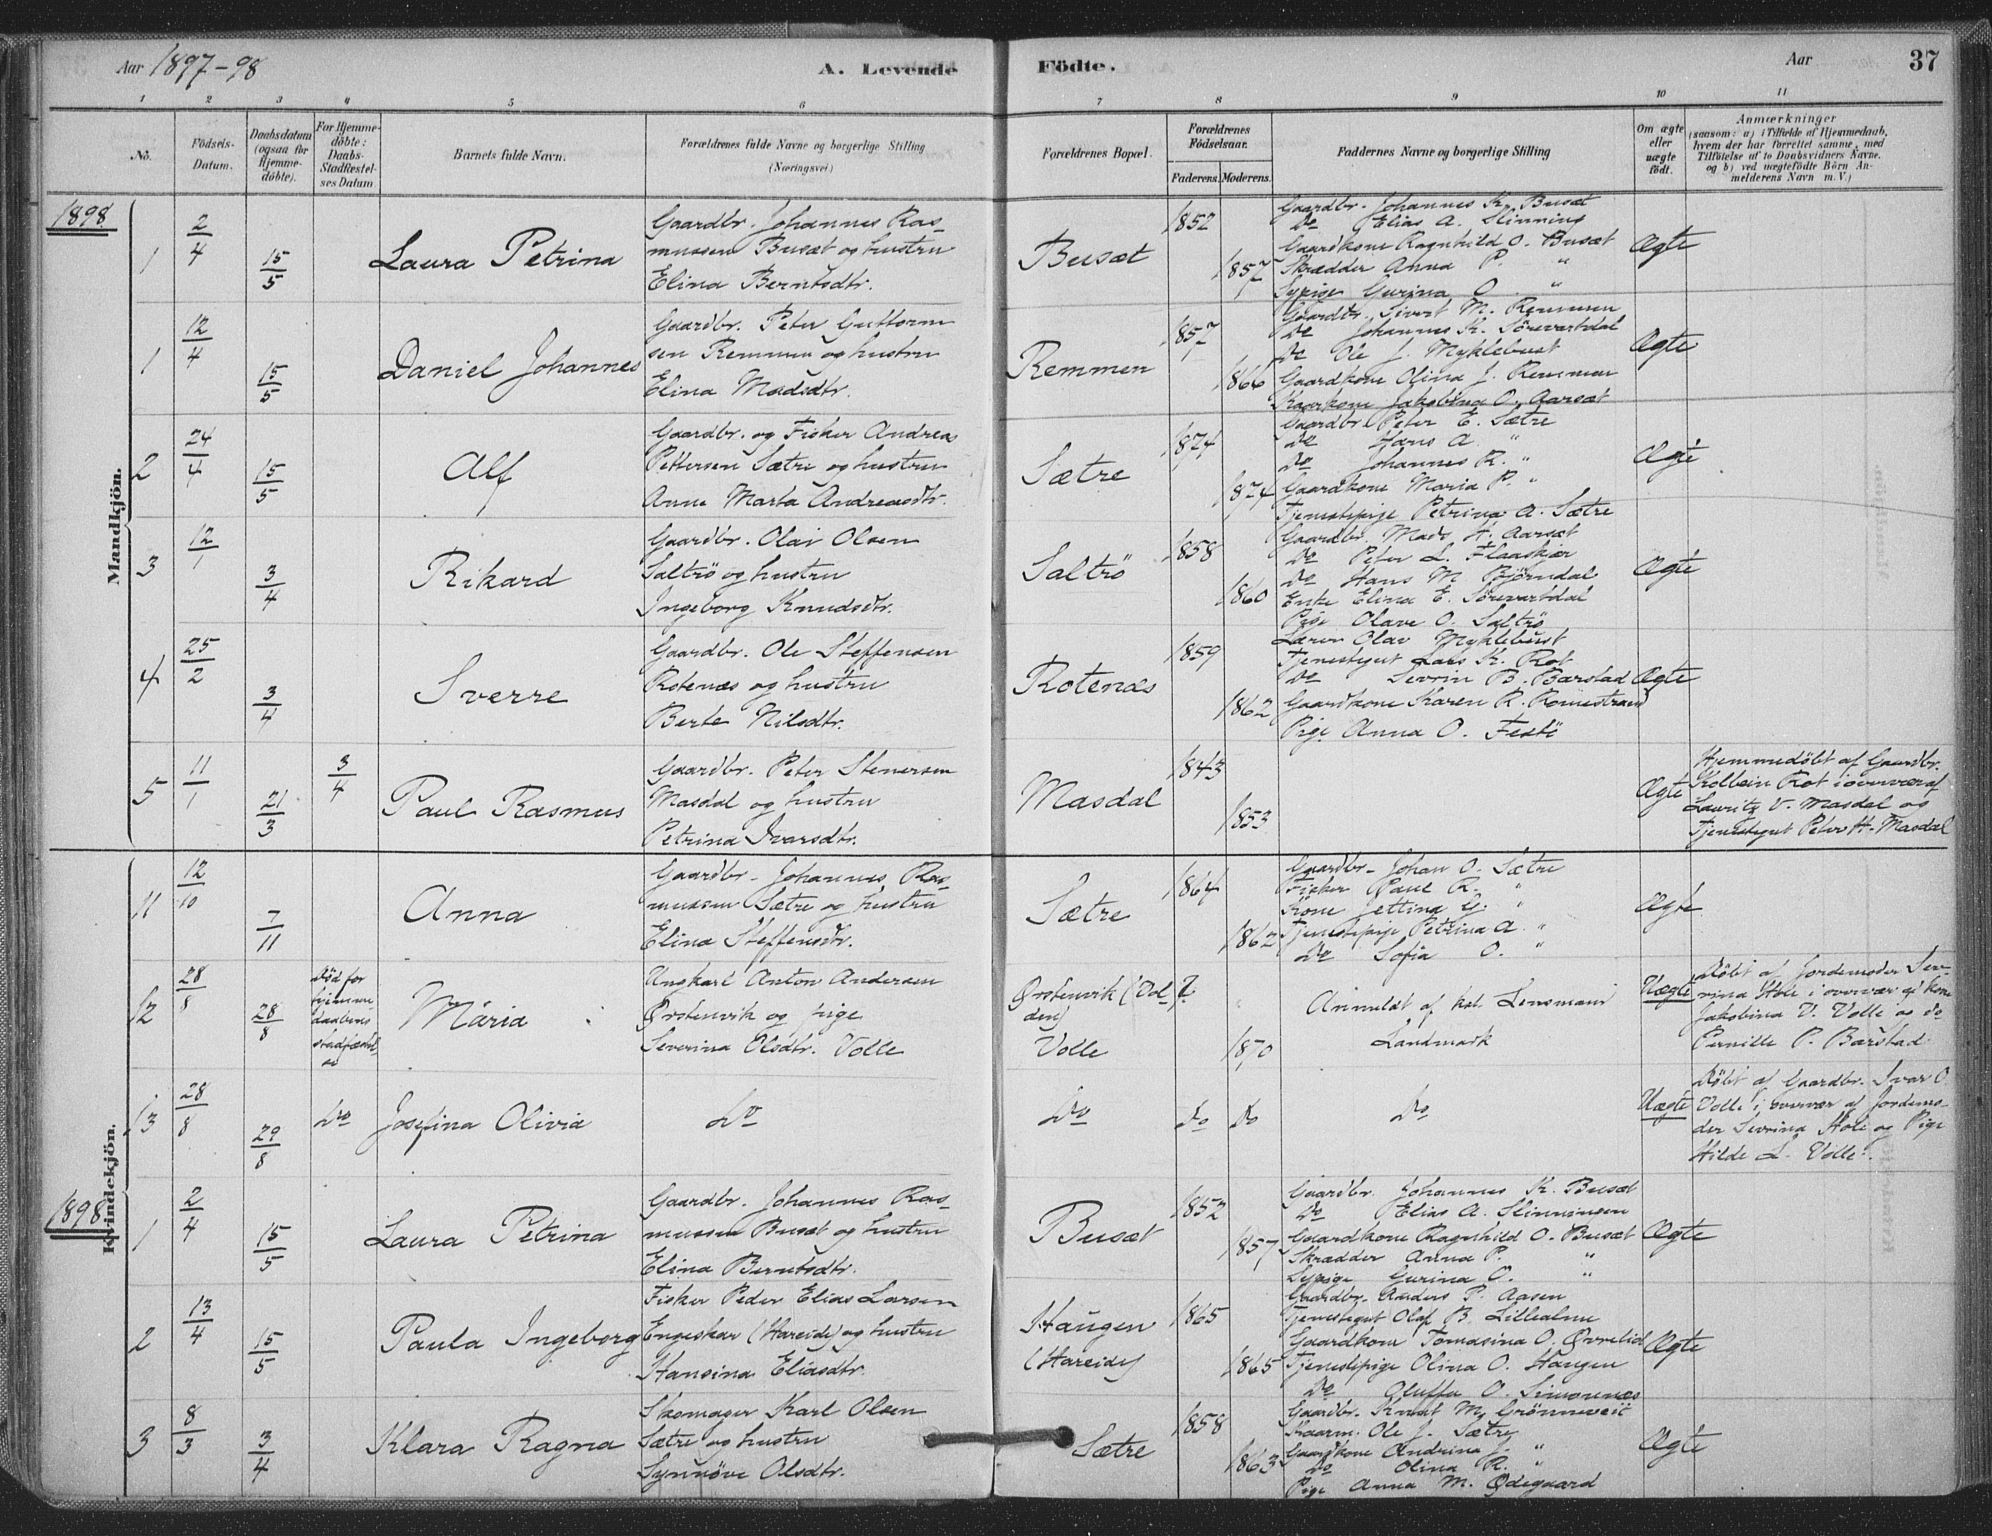 Aar 1897-98
A. Levende
Födte.
Aar
37
1 2 3 4 5 6 7 8 9 10 11
No.
Födsels-Datum.
Daabsdatum (ogsaa for Hjemme-döbte).
For Hjemme-döbte: Daabs-Stadfæstel-ses Datum.
Barnets fulde Navn.
Forældrenes fulde Navne og borgerlige Stilling
(Næringsvei)
Forældrenes Bopæl.
Forældrenes Födselsaar.
Faderens. Moderens.
Faddernes Navne og borgerlige Stilling
Om ægte eller uægte födt.
Anmærkninger
(saasom: a) i Tilfælde af Hjemmedaab,
hvem der har forrettet samme, med
Tilföielse af to Daabsvidners Navne.
og b) ved uægtefödte Börn An-
melderens Navn m. V.)
Mandkjön.
1898
1 2/4 15/5 Laura Petrina
Gaardbr. Johannes Ras-
mussen Busæt og hustru
Elina Berntsdtr.
Busæt 1852 1857
Gaardbr. Johannes K. Busæt
Do Elias A. Slinning
Gaardkone Ragnhild O. Busæt
Skrædder Anna P. "
Sypige Gurina O. "
Ægte
1 12/4 15/5 Daniel Johannes
Gaardbr. Peter Guttorm
sen Remmen og hustru
Elina Madsdtr.
Remmen 1857 1866
Gaardbr. Sivert M. Remmen
Do Johannes K. Sörevartdal
Do Ole J. Myklebust
Gaardkone Olina J. Remmen
Kaarkone Jakobina O. Aarsæt
Ægte
2 24/4 15/5 Alf
Gaardbr. og Fisker Andreas
Pettersen Sætre og hustru
Anne Marta Andreasdtr.
Sætre 1874 1874
Gaardbr. Peter E. Sætre
Do Hans A. "
Do Johannes R. "
Gaardkone Maria P. "
Tjenestepige Petrina A. Sætre
Ægte
3 12/1 3/4 Rikard
Gaardbr. Olai Olsen
Saltrö og hustru
Ingeborg Knudsdtr.
Saltrö 1858 1860
Gaardbr. Mads H. Aarsæt
Do Peter L. Flaaskjær
Do Hans M. Björndal
Enke Elina E. Sörevartdal
Pige Olave O. Saltrö
Ægte
4 25/2 3/4 Sverre
Gaardbr. Ole Steffensen
Rotenæs og hustru
Berte Nilsdtr.
Rotenæs 1859 1862
Lærer Olav Myklebust
Tjenestegut Lars K. Rot
Do Sevrin B. Barstad
Gaardkone Karen R. Romestrand
Pige Anna O. Festö
Ægte
5 11/1 21/3 3/4 Paul Rasmus
Gaardbr. Peter Stenersen
Masdal og hustru
Petrina Ivarsdtr.
Masdal 1843 1853
Ægte
Hjemmedöbt af Gaardbr.
Kolbein Rot i overvær af
Lauritz V. Masdal og
Tjenestegut Peter H. Masdal
Kvindekjön.
11 12/10 7/11 Anna
Gaardbr. Johannes Ras-
mussen Sætre og hustru
Elina Steffensdtr.
Sætre 1864 1862
Gaardbr. Johan O. Sætre
Fisker Paul R. "
Kone Jettina G. "
Tjenestepige Petrina A. "
Do Sofia O. "
Ægte
12 28/8 28/8
Död for
hjemme
daabens
stadfæstel
se
Maria
Ungkarl Anton Andersen
Ørstenvik og pige
Severina Olsdtr. Volle
Ørstenvik (Vol-
den)
Volle
? 1870
Anmeldt af kst. Lensmann
Landmark
Uægte
Döbt af Jordemoder Sev-
rina Hole i overvær af kone
Jakobina V. Volle og do
Pernille P. Barstad.
13 28/8 29/8 Do Josefina Olivia
Do
Do Do Do
Do
Uægte
Döbt af Gaardbr. Ivar O.
Volle i overvær af Jordemo-
der Sevrina Hole og Pige
Hilde L. Volle.
1898
1 2/4 15/5 Laura Petrina
Gaardbr. Johannes Ras-
mussen Busæt og hustru
Elina Berntsdtr.
Busæt 1852 1857
Gaardbr. Johannes K. Busæt
Do Elias A. Slinningen
Gaardkone Ragnhild O. Busæt
Skrædder Anna P. "
Sypige Gurina O. "
Ægte
2 13/4 15/5 Paula Ingeborg
Fisker Peder Elias Larsen
Engeskar (Hareide) og hustru
Hansina Eliasdtr.
Haugen
(Hareide)
1865 1865
Gaardbr. Anders P. Aasen
Tjenestegut Olaf B. Lillealm
Gaardkone Tomasina O. Øvrelid
Tjenestepige Olina O. Haugen
Do Oluffa O. Simonnæs
Ægte
3 8/3 3/4 Klara Ragna
Skomager Karl Olsen
Sætre og hustru
Synnöve Olsdtr.
Sætre 1858 1863
Gaardbr. Knut M. Grönneveit
Kaarm. Ole J. Sætre
Gaardkone Andrina J. "
Do Olina R. "
Pige Anna M. Ødegaard
Ægte